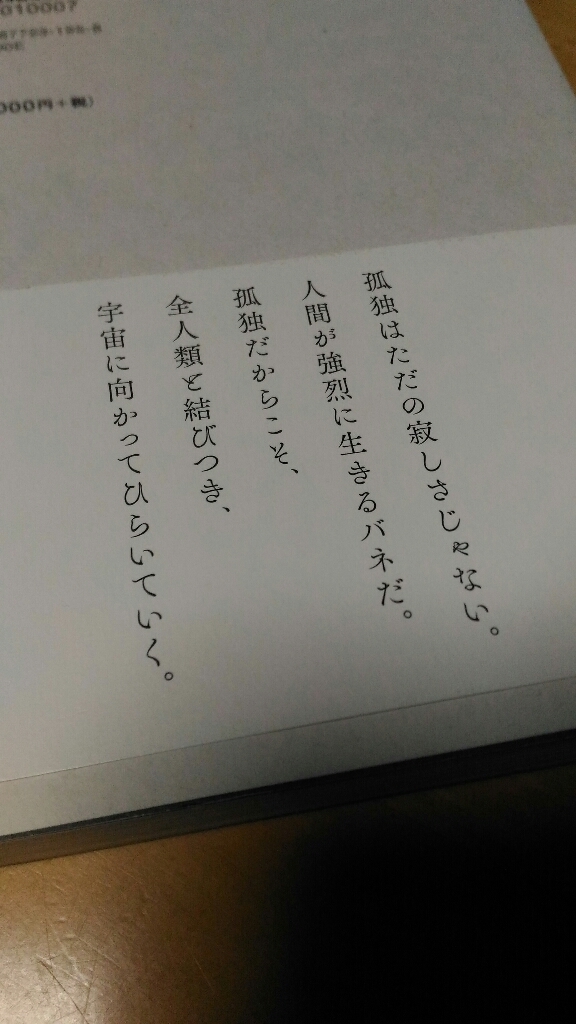 010007
000円+税)
孤独はただの寂しさじゃない。
人間が強烈に生きるバネだ。
孤独だからこそ、
全人類と結びつき、
宇宙に向かってひらいていく。